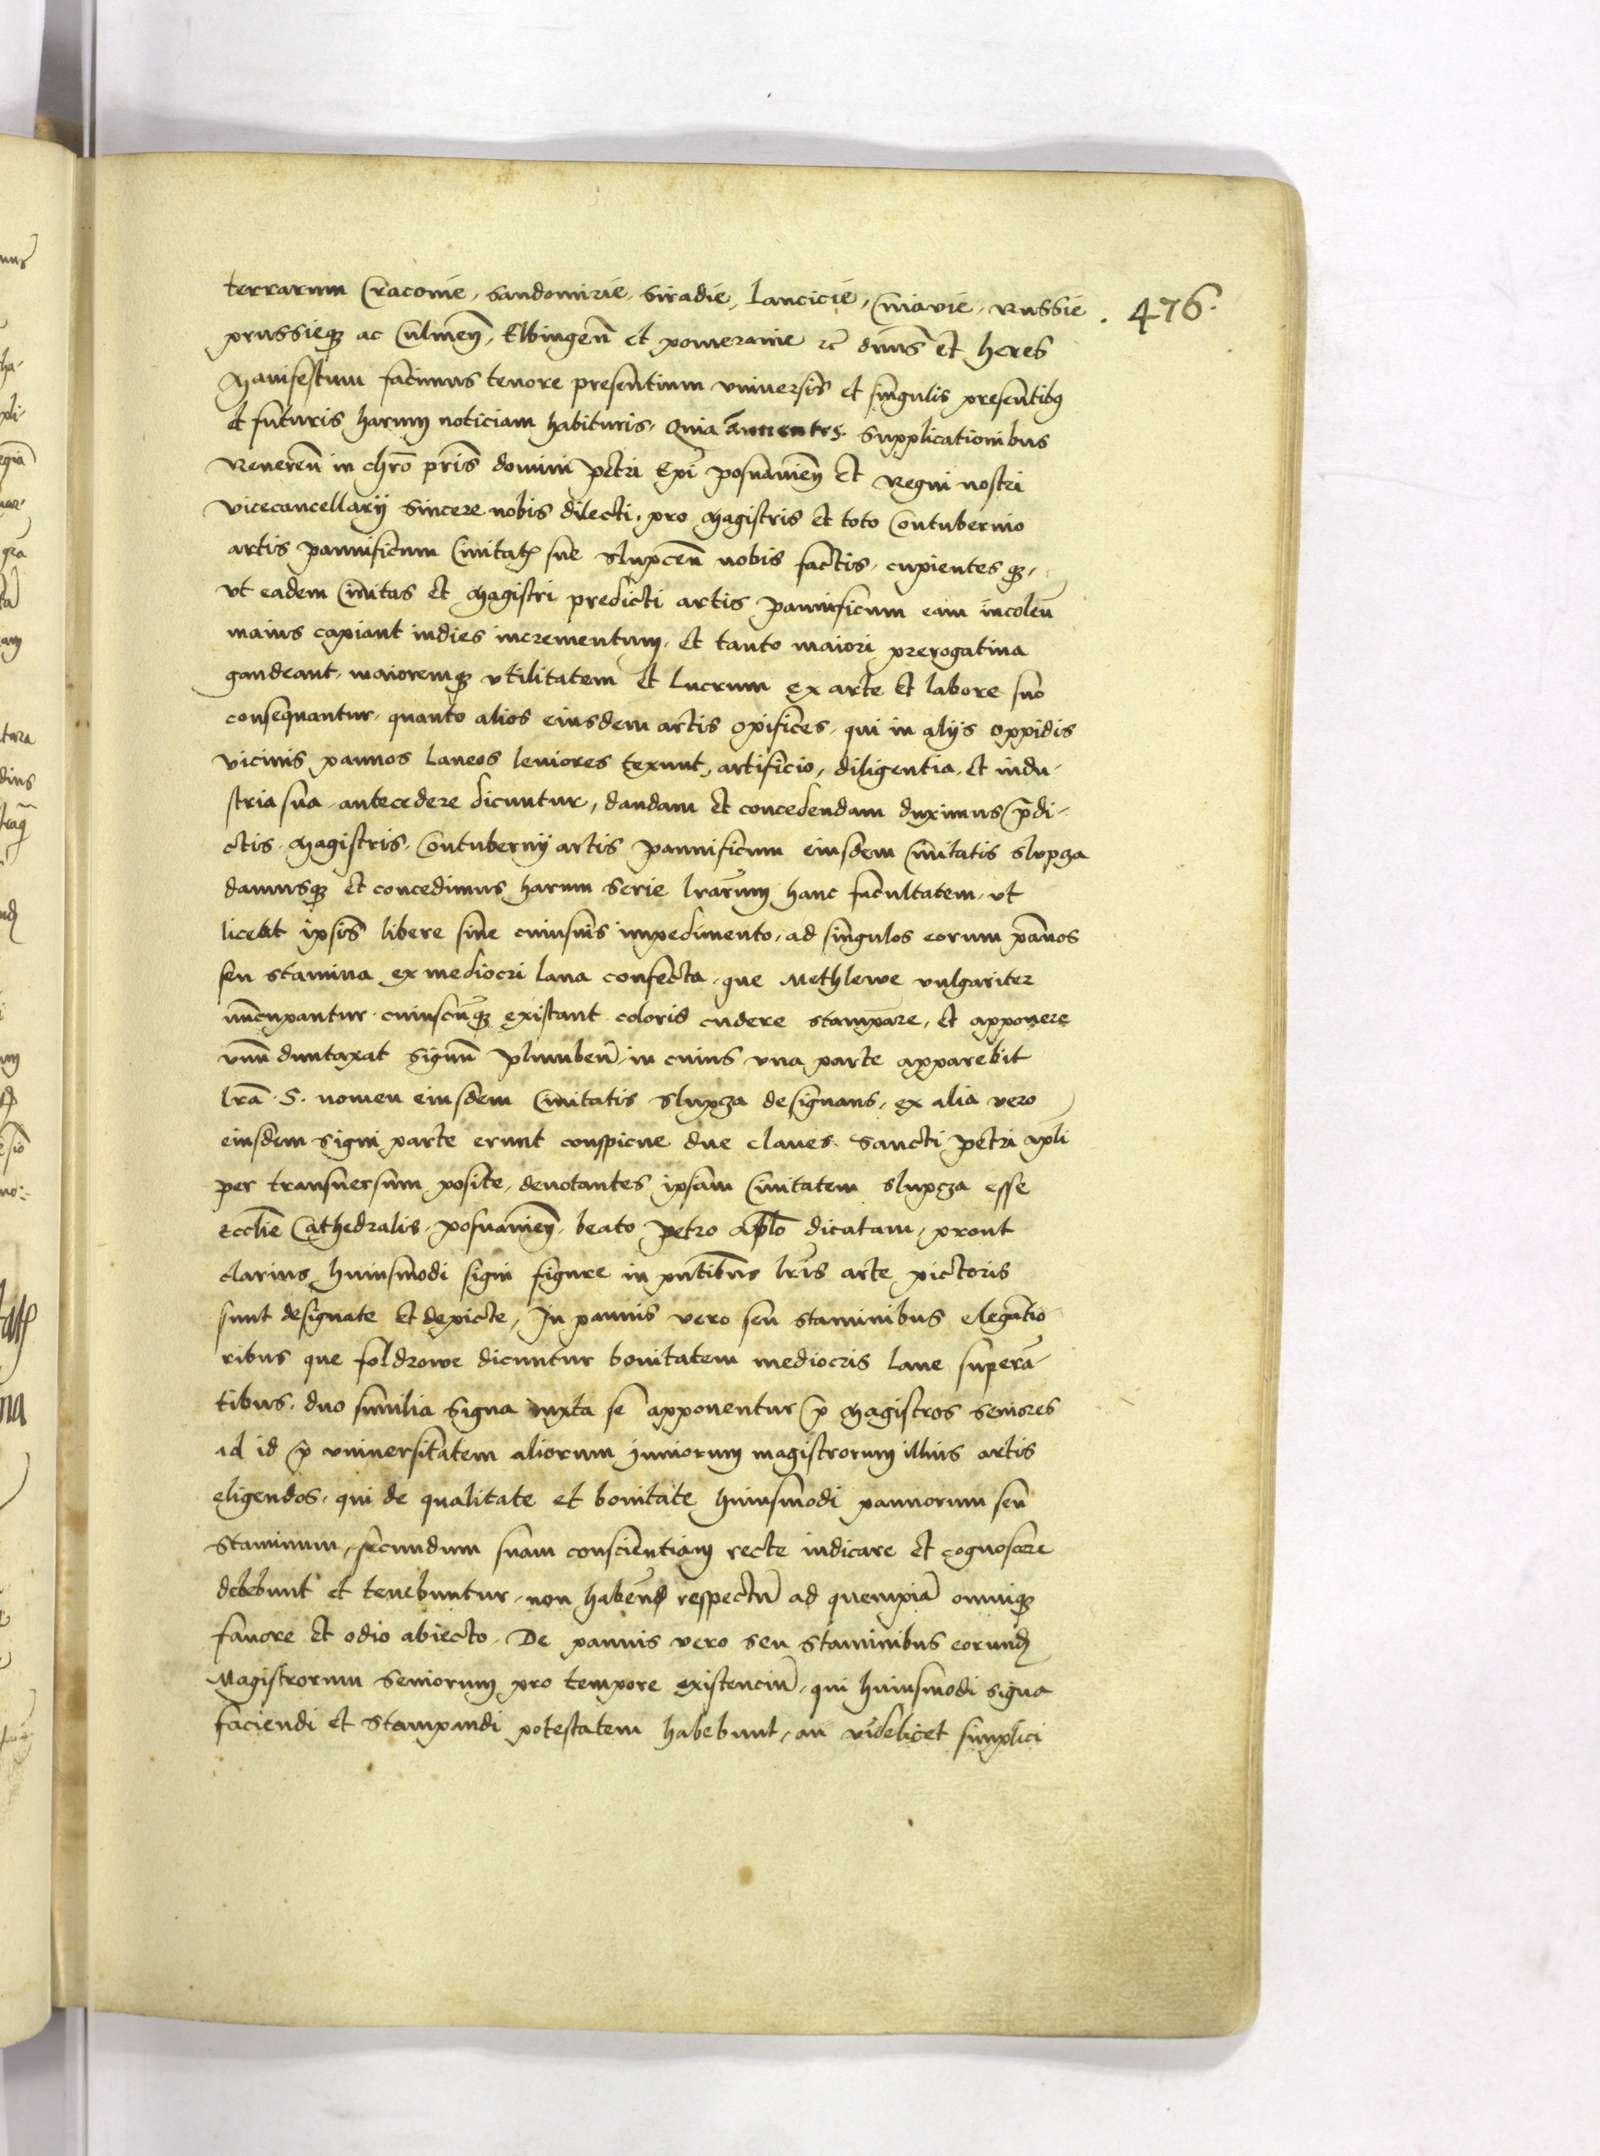 terrarum Cracovie, Sandomirie, Siradie, Lancicie, Cuiavie, Russie
476.
prussieqȝ ac Culmen̄, Elbingen̄ et pomeranie zc̄ dn̄us et heres
Manifestum facimus tenore presentium vniuersis et singulis presentibꝰ
et futuris harum noticiam habituris. Quia annuentes supplicationibus
Reueren̄ in chr̄o pr̄is domini Petri Ep̄i posnanien̄ et Regni nostri
vicecancellarij sincere nobis dilecti, pro Magistris et toto Contubernio
artis pannificum Ciuitatꝭ sue Slupcen̄ nobis factis, cupientes qȝ,
vt eadem Ciuitas et Magistri predicti artis pannificum eam incolen̄
maius capiant indies incrementum, et tanto maiori prerogatiua
gaudeant, maioremqȝ vtilitatem et lucrum ex arte et labore suo
consequantur, quanto alios eiusdem artis opifices, qui in alijs oppidis
vicinis pannos laneos leuiores texunt, artificio, diligentia, et indu-
stria sua antecedere dicuntur, dandam et concedendam duximus p̄di-
ctis Magistris Contubernij artis pannificum eiusdem Ciuitatis Slupcza
damusqȝ et concedimus harum serie lr̄arum hanc facultatem, vt
liceat ipsis libere sine cuiusuis impedimento, ad singulos eorum pan̄os
seu stamina ex mediocri lana confecta, que Methlewe vulgariter
nūcupantur cuiuscūqȝ existant coloris cudere stampare, et apponere
vnū duntaxat signū plumbeū, in cuius vna parte apparebit
lr̄a S. nomen eiusdem Ciuitatis Slupcza designans, ex alia vero
eiusdem signi parte erunt conspicue due claues Sancti Petri apl̄i
per transuersum posite, denotantes ipsam Ciuitatem Slupcza esse
Eccl̄ie Cathedralis posnanien̄ beato Petro Apl̄o dicatam, prout
clarius huiusmodi signi figure in pn̄tibus lr̄is arte pictoris
sunt designate et depicte, In pannis vero seu staminibus elegātio
ribus que foldrowe dicuntur bonitatem mediocris lane superā-
tibus, duo similia signa iuxta se apponentur p̱ Magistros seniores
ad id p̱ vniuersitatem aliorum juniorum magistrorum illius artis
eligendos, qui de qualitate et bonitate huiusmodi pannorum seu
staminum, secundum suam conscientiam recte iudicare et cognoscere
debebunt et tenebuntur, non haben̄d respectū ad quempiā omniqȝ
fauore et odio abiecto. De pannis vero seu staminibus eorund̄
Magistrorum seniorum pro tempore existenciū, qui huiusmodi signa
faciendi et stampandi potestatem habebunt, an videlicet simplici